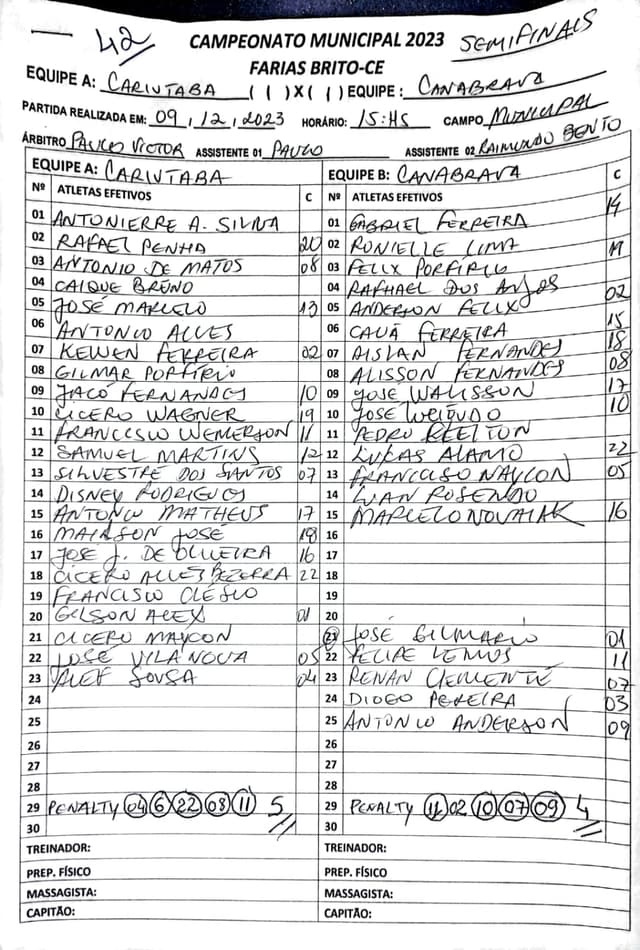 42
CAMPEONATO MUNICIPAL 2023 SEMIFINAIS
FARIAS BRITO-CE
EQUIPE A: CARIUTABA ( ) X ( ) EQUIPE : CANABRAVA
PARTIDA REALIZADA EM: 09/12/2023 HORÁRIO: 15:HS CAMPO MUNICIPAL
ÁRBITRO PAULO VICTOR ASSISTENTE 01 PAULO ASSISTENTE 02 RAIMUNDO BENTO
EQUIPE A: CARIUTABA
Nº ATLETAS EFETIVOS C
01 ANTONIERRE A. SILVA
02 RAFAEL PENHA 20
03 ANTONIO DE MATOS 08
04 CAIQUE BRUNO
05 JOSÉ MARCELO 13
06 ANTONIO ALVES
07 KEWEN FERREIRA 02
08 GILMAR PORFÍRIO
09 JACÓ FERNANDES 10
10 CICERO WAGNER 19
11 FRANCISCO WEMERSON 11
12 SAMUEL MARTINS 12
13 SILVESTRE DOS SANTOS 07
14 DISNEY RODRIGUES
15 ANTONIO MATHEUS 17
16 MAIRSON JOSÉ 18
17 JOSÉ J. DE OLIVEIRA 16
18 CICERO ALVES BEZERRA 22
19 FRANCISCO CLÉSIO
20 GILSON ALEX 01
21 CICERO MAYCON
22 JOSÉ VILANOVA 05
23 ALEF SOUSA 04
24
25
26
27
28
29 PENALTY 04 6 22 08 11 5
30
TREINADOR:
PREP. FÍSICO
MASSAGISTA:
CAPITÃO:
EQUIPE B: CANABRAVA
Nº ATLETAS EFETIVOS C
01 GABRIEL FERREIRA 14
02 RONIELLE LIMA
03 FELIX PORFIRIO
04 RAPHAEL DOS ANJOS
05 ANDERSON FELIX 02
06 CAUÃ FERREIRA 15
07 AISLAN FERNANDES 18
08 ALISSON FERNANDES 08
09 JOSÉ WALISSON 17
10 JOSÉ 10
11 PEDRO
12 LUKAS ALAMO 22
13 FRANCISCO NAYCON 05
14 LUAN ROSENDO
15 MARCELO 16
16
17
18
19
20
21 JOSÉ GILMARIO 01
22 FELIPE LEMOS 11
23 RENAN CLEMENTE 07
24 DIOGO PEREIRA 03
25 ANTONIO ANDERSON 09
26
27
28
29 PENALTY 11 02 10 07 09 4
30
TREINADOR:
PREP. FÍSICO
MASSAGISTA:
CAPITÃO: